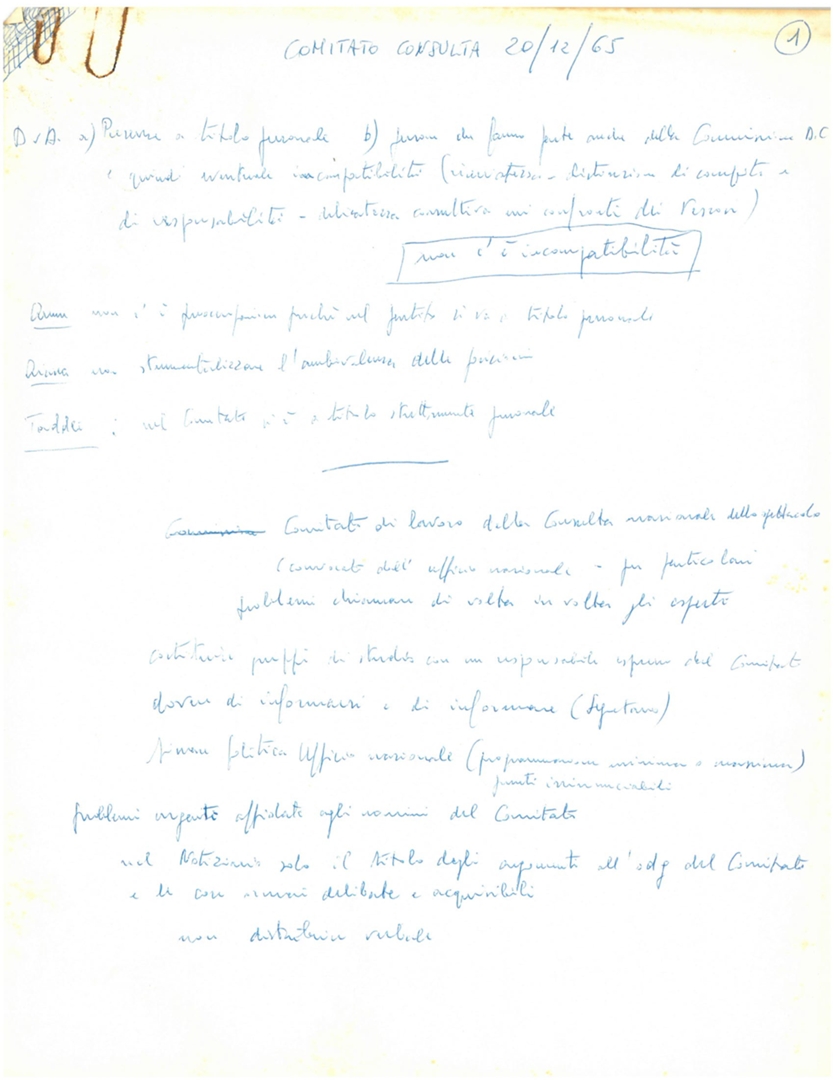 COMITATO CONSULTA 20/12/65
1
a) Presenze a titolo personale b) persone che fanno parte anche della Commissione D.C.
e quindi eventuale incompatibilità (riservatezza - distinzione di compiti e
di responsabilità - delicatezza consultiva nei confronti dei Vescovi)
non c'è incompatibilità
non c'è preoccupazione perché nel partito si va a titolo personale
non strumentalizzare l'ambivalenza delle posizioni
Taddei : nel Comitato si è a titolo strettamente personale
Comitato di lavoro della Consulta nazionale dello spettacolo
(convocati dall'ufficio nazionale - per particolari
problemi chiamare di volta in volta gli esperti
costituire gruppi di studio con un responsabile espresso dal Comitato
dovere di informarsi e di informare (
politica Ufficio nazionale (programmazione minima o massima)
punti irrinunciabili
problemi urgenti affidati agli uomini del Comitato
nel Notiziario solo il titolo degli argomenti all'odg del Comitato
e le cose ormai delibate e acquisibili
non distribuire verbale